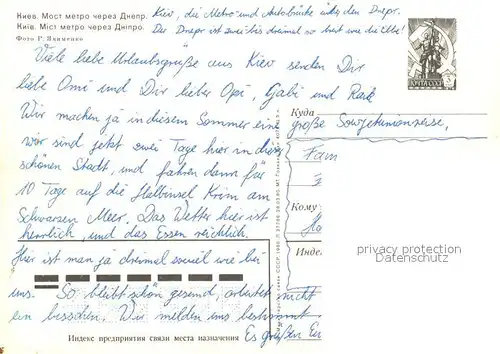 Киев. Мост метро через Днепр.
Київ. Міст метро через Дніпро.
Фото Г. Якименко
Kiev, die Metro und Autobrücke über den Dnepr.
Der Dnepr ist zwei bis dreimal so breit wie die Elbe!
Viele liebe Urlaubsgrüße aus Kiev senden Dir
liebe Omi und Dir lieber Opi, Gabi und
Wir machen ja in diesem Sommer eine große Sowjetunionreise,
wir sind jetzt zwei Tage hier in dieser
schönen Stadt, und fahren dann für
10 Tage auf die Halbinsel Krim am
Schwarzen Meer. Das Wetter hier ist
herrlich, und das Essen reichlich.
Hier ist man ja dreimal soviel wie bei
uns. So bleibt schön gesund, arbeitet nicht
ein bisschen. Wir melden uns bestimmt
Es grüßen Eu
Куда
Fam
Кому
Индекс
privacy protection
Datenschutz
Индекс предприятия связи места назначения